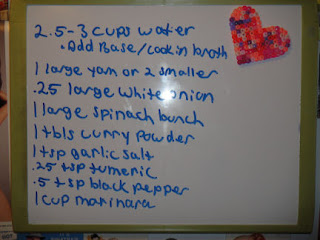 2.5-3 cups water
• Add Base/cook in broth
1 large yam or 2 smaller
.25 large white onion
1 large spinach bunch
1 tbls curry powder
1 tsp garlic salt
.25 tsp tumeric
.5 tsp black pepper
1 cup marinara